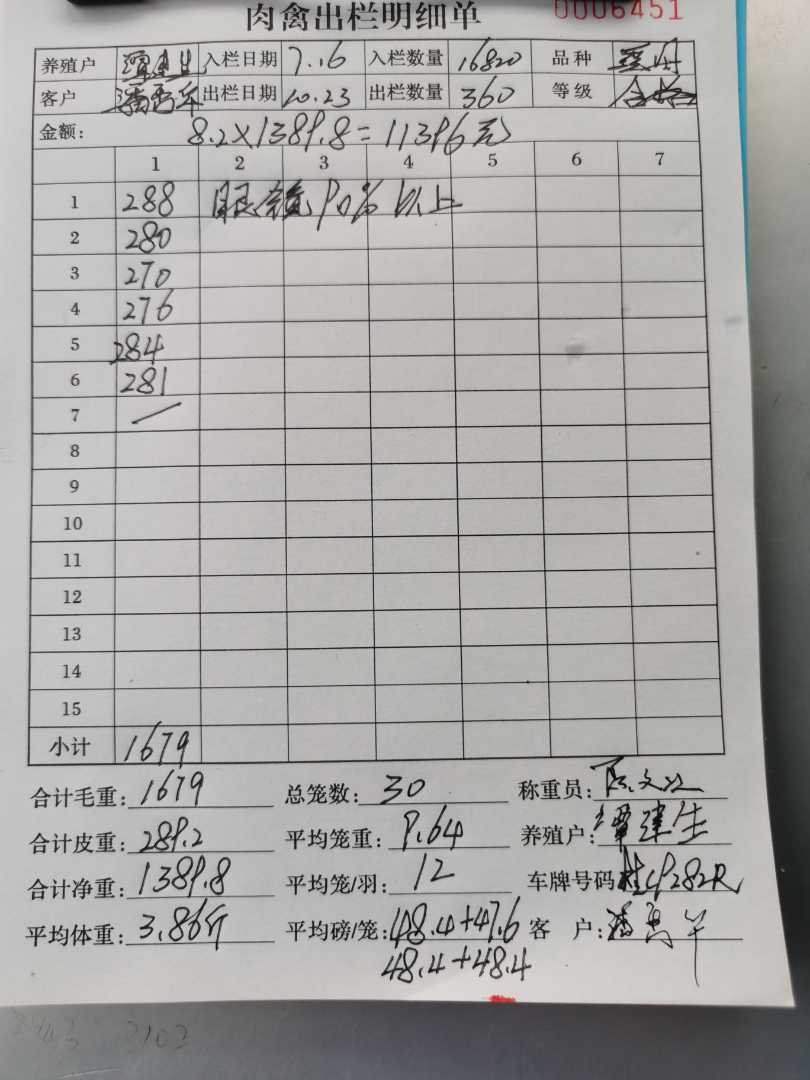 肉禽出栏明细单 0006451
养殖户 谭建生 入栏日期 7.16 入栏数量 16820 品种
客户 出栏日期 10.23 出栏数量 360 等级 合格
金额: 8.2×1389.8=11396元
1 2 3 4 5 6 7
1 288 眼镜90%以上
2 280
3 270
4 276
5 284
6 281
7 /
8
9
10
11
12
13
14
15
小计 1679
合计毛重: 1679 总笼数: 30 称重员:
合计皮重: 289.2 平均笼重: 9.64 养殖户: 谭建生
合计净重: 1389.8 平均笼/羽: 12 车牌号码
平均体重: 3.86斤 平均磅/笼: 48.4+47.6 客 户:
48.4+48.4